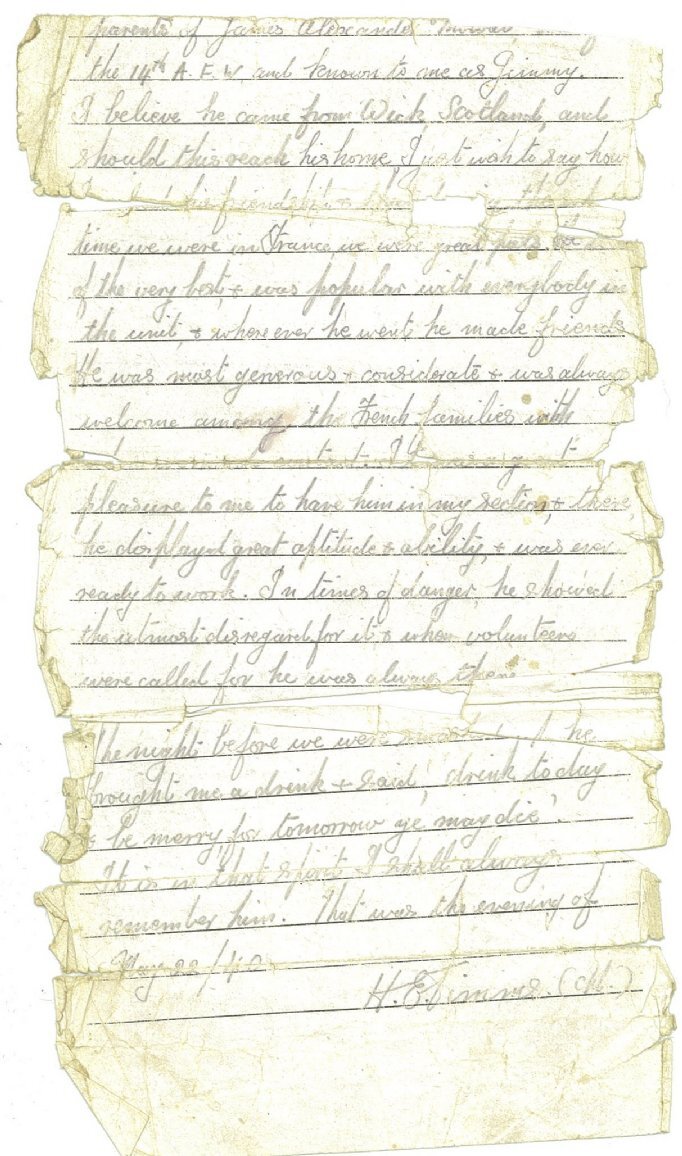 parents of James Alexander
the 14th A.F.W. and known to me as Jimmy.
I believe he came from Wick Scotland, and
should this reach his home, I just wish to say how
his friendship &
time we were in France, we were great pals.
of the very best, & was popular with everybody in
the unit, & where ever he went he made friends
He was most generous & considerate & was always
welcome among the French families with
pleasure to me to have him in my section, & there,
he displayed great aptitude & ability, & was ever
ready to work. In times of danger, he showed
the utmost disregard for it & when volunteers
were called for he was always there
The night before we were he
brought me a drink & said, 'drink today
& be merry, for tomorrow ye may die'.
It is in that spirit I shall always
remember him. That was the evening of
May 22/40
H.E. Timms. (M.)